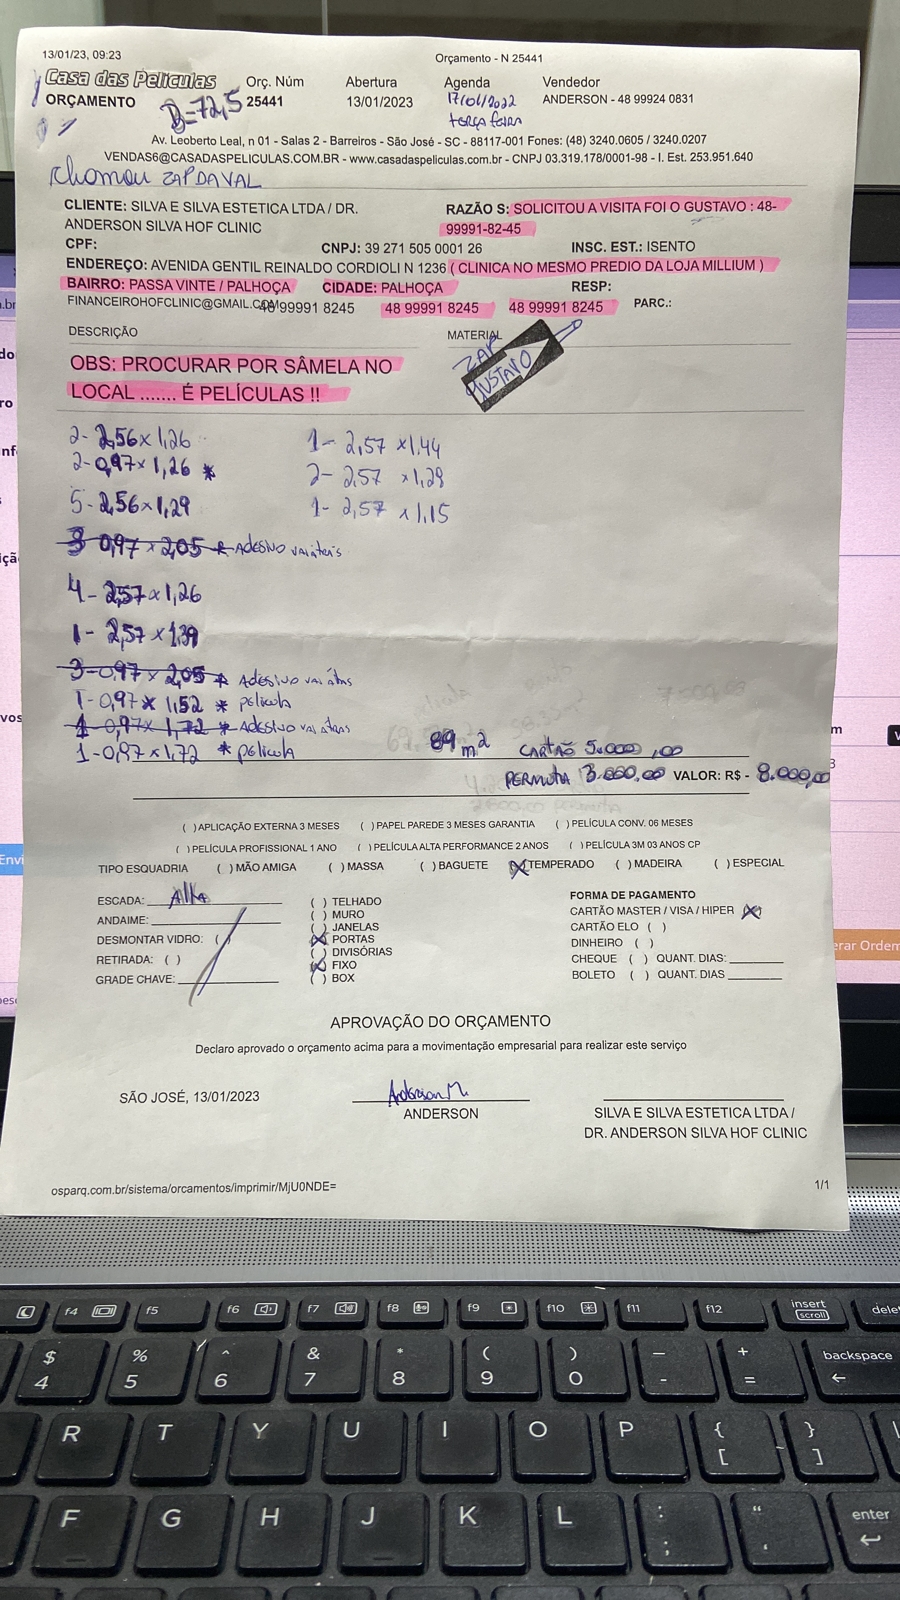 13/01/23, 09:23
Orçamento - N 25441
Casa das Películas
Orç. Núm
Abertura
Agenda
Vendedor
ORÇAMENTO
B=72,5
25441
13/01/2023
17/01/2022
ANDERSON - 48 99924 0831
terça feira
Av. Leoberto Leal, n 01 - Salas 2 - Barreiros - São José - SC - 88117-001 Fones: (48) 3240.0605 / 3240.0207
VENDAS6@CASADASPELICULAS.COM.BR - www.casadaspeliculas.com.br - CNPJ 03.319.178/0001-98 - I. Est. 253.951.640
ZAP DA VAL
CLIENTE: SILVA E SILVA ESTETICA LTDA / DR.
ANDERSON SILVA HOF CLINIC
RAZÃO S: SOLICITOU A VISITA FOI O GUSTAVO : 48-
99991-82-45
CPF:
CNPJ: 39 271 505 0001 26
INSC. EST.: ISENTO
ENDEREÇO: AVENIDA GENTIL REINALDO CORDIOLI N 1236 ( CLINICA NO MESMO PREDIO DA LOJA MILLIUM )
BAIRRO: PASSA VINTE / PALHOÇA
CIDADE: PALHOÇA
RESP:
FINANCEIROHOFCLINIC@GMAIL.COM
48 99991 8245
48 99991 8245
48 99991 8245
PARC.:
DESCRIÇÃO
MATERIAL
ZAP
GUSTAVO
OBS: PROCURAR POR SÂMELA NO
LOCAL ....... É PELÍCULAS !!
2- 2,56 x 1,26
1- 2,57 x 1,44
2- 0,97 x 1,26 *
2- 2,57 x 1,29
5- 2,56 x 1,29
1- 2,57 x 1,15
3 0,97 x 2,05 * Adesivo vai
4- 2,57 x 1,26
1- 2,57 x 1,39
3- 0,97 x 2,05 * Adesivo vai
1- 0,97 x 1,52 * película
1- 0,97 x 1,72 * Adesivo vai
1- 0,97 x 1,72 * película
89 m²
CARTÃO 5.000,00
PERMUTA 3.000,00 VALOR: R$ - 8.000,00
( ) APLICAÇÃO EXTERNA 3 MESES ( ) PAPEL PAREDE 3 MESES GARANTIA ( ) PELÍCULA CONV. 06 MESES
( ) PELÍCULA PROFISSIONAL 1 ANO ( ) PELÍCULA ALTA PERFORMANCE 2 ANOS ( ) PELÍCULA 3M 03 ANOS CP
TIPO ESQUADRIA ( ) MÃO AMIGA ( ) MASSA ( ) BAGUETE (X) TEMPERADO ( ) MADEIRA ( ) ESPECIAL
ESCADA: Alta
ANDAIME:
DESMONTAR VIDRO: ( )
RETIRADA: ( )
GRADE CHAVE:
( ) TELHADO
( ) MURO
( ) JANELAS
(X) PORTAS
( ) DIVISÓRIAS
(X) FIXO
( ) BOX
FORMA DE PAGAMENTO
CARTÃO MASTER / VISA / HIPER (X)
CARTÃO ELO ( )
DINHEIRO ( )
CHEQUE ( ) QUANT. DIAS:
BOLETO ( ) QUANT. DIAS
APROVAÇÃO DO ORÇAMENTO
Declaro aprovado o orçamento acima para a movimentação empresarial para realizar este serviço
SÃO JOSÉ, 13/01/2023
Anderson M.
ANDERSON
SILVA E SILVA ESTETICA LTDA /
DR. ANDERSON SILVA HOF CLINIC
osparq.com.br/sistema/orcamentos/imprimir/MjU0NDE=
1/1
f4 f5 f6 f7 f8 f9 f10 f11 f12 insert dele
scroll
$ % ^ & * ( ) _ + backspace
4 5 6 7 8 9 0 - =
R T Y U I O P { [ } ]
F G H J K L : ; " ' enter